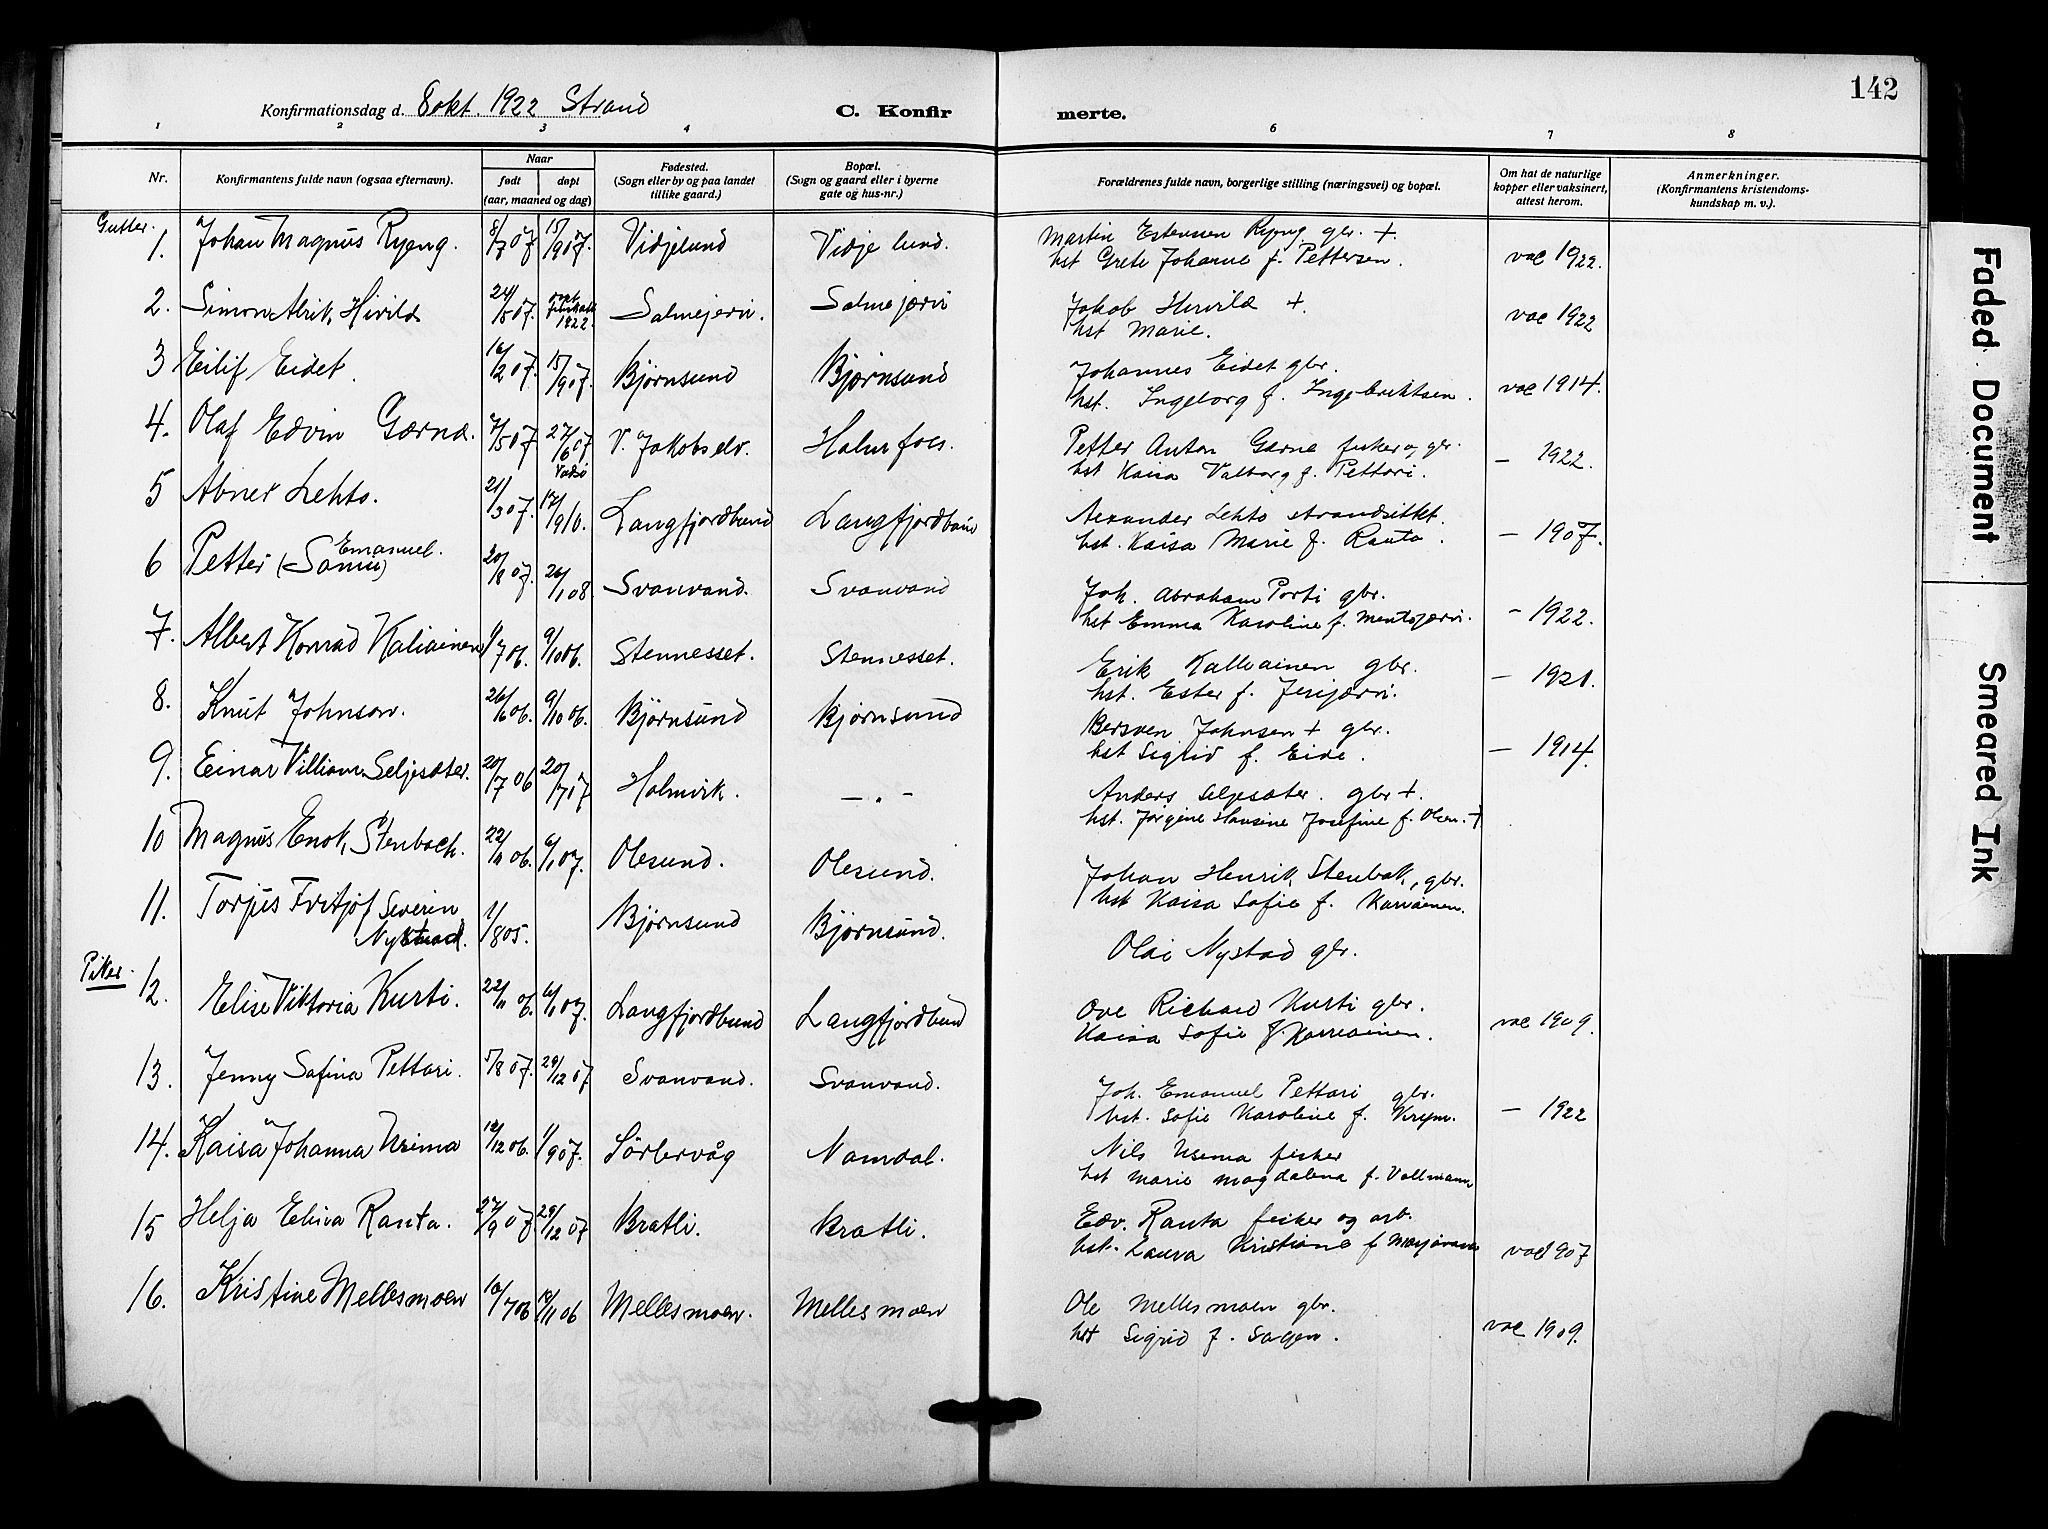 142
Konfirmationsdag d. 8 okt. 1922 Strand
C. Konfirmerte.
1 2 3 4 5 6 7 8
Nr. Konfirmantens fulde navn (ogsaa efternavn). Naar født døpt (aar, maaned og dag) Fødested. (Sogn eller by og paa landet tillike gaard.) Bopæl. (Sogn og gaard eller i byerne gate og hus-nr.) Forældrenes fulde navn, borgerlige stilling (næringsvei) og bopæl. Om hat de naturlige kopper eller vaksinert, attest herom. Anmerkninger. (Konfirmantens kristendoms-kundskap m. v.).
Gutter.
1. Johan Magnus Ryeng. 8/7 07 15/9 07. Vidjelund Vidjelund. Martin Estensen Ryeng gbr. +.
hst Grete Johanne f. Pettersen. vac 1922.
2. Simon Alrik Hivild 24/5 07. 1922. Salmejervi. Salmejærvi Jakob Hivild +
hst Marie. vac 1922
3 Eilif Eidet. 16/2 07. 15/9 07. Bjørnsund Bjørnsund Johannes Eidet gbr.
hst. Ingeborg f. Ingebriktsen. vac 1914.
4. Olaf Edvin Gærna. 7/5 07. 27/6 07 Vadsø V. Jakobselv. Holmfoss. Petter Anton Gærne fisker o, gbr.
hst Kaisa Valborg f. Pettari. – 1922.
5 Abner Lehto. 21/3 07. 17/9 10. Langfjordbund Langfjordbund Alexander Lehto strandsittet.
hst. Kaisa Marie f. Ranta. – 1907.
6 Petter (Samu) Emanuel. 20/8 07. 26/1 08 Svanvand. Svanvand Joh. Abraham Porti gbr.
hst Emma Karoline f. Mentyjærvi. – 1922.
7. Albert Konrad Kaliainen 1/7 06. 9/10 06. Stennesset. Stennesset. Erik Kalliainen gbr.
hst. Ester f. Jerijærvi. – 1921.
8. Knut Johnsen. 26/6 06. 9/10 06. Bjørnsund Bjørnsund Bersven Johnsen + gbr.
hst Sigrid f. Eide. – 1914.
9. Einar Villiam Seljesæter. 20/7 06 20/7 07 Holmvik. – „ – Anders Seljesæter. gbr +.
hst. Jørgine Hansine Josefine f. Olsen. +
10 Magnus Enok Stenbach. 22/11 06. 6/1 07. Olesund. Olesund. Johan Henrik Stenbak, gbr.
hst Kaisa Sofie f. Karvainen.
11. Torjus Fritjof Severin Nystad. 1/8 05. Bjørnsund Bjørnsund. Olai Nystad gbr.
Piker.
12. Elise Viktoria Kurti. 22/11 06. 6/1 07. Langfjordbund Langfjordbund Ove Richard Kurti gbr.
Kaisa Sofie f. Karvainen. vac 1909.
13. Jenny Safina Pettari. 5/8 07. 29/12 07 Svanvand. Svanvand. Joh. Emanuel Pettari gbr.
hst. Sofie Karoline f. Krym. – 1922
14. Kaisa Johanna Usima 12/12 06. 1/9 07. Sörlervåg Namdal. Nils Usema fisker
hst Marie Magdalena f. Vollmann
15 Helja Elina Ranta. 27/9 07 29/12 07 Bratli. Bratli. Edv. Ranta fisker og arb.
hst. Laura Kristiane f Marjavara vac 1907
16. Kristine Mellesmoen 10/7 06 18/11 06 Mellesmoen. Mellesmoen Ole Mellesmoen gbr.
hst Sigrid f. Sagen. vac 1909.
Faded Document
Smeared Ink